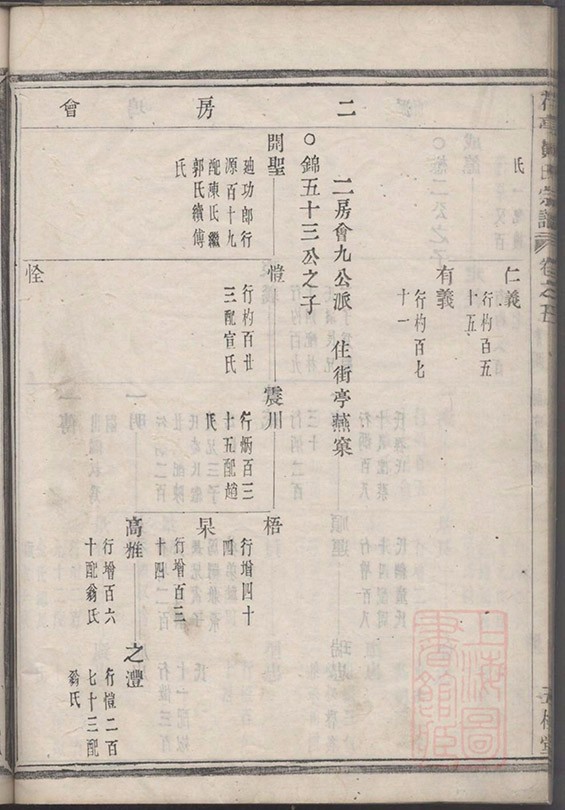 宗譜
卷之
氏
仁義
行杓百五
十五
有義
行杓百七
十一
二房會
二房會九公派 住街亭燕窠
○錦五十三公之子
開聖
迪功郎行
源百十九
配陳氏繼
郭氏續傅
氏
愷
行杓百廿
三配宣氏
怪
震川
行炳百三
十五配趙
氏
梧
行增四十
四
杲
行增百三
十四
高雅
行增百六
十配翁氏
之灃
行愷二百
七十三配
翁氏
上海圖書館藏